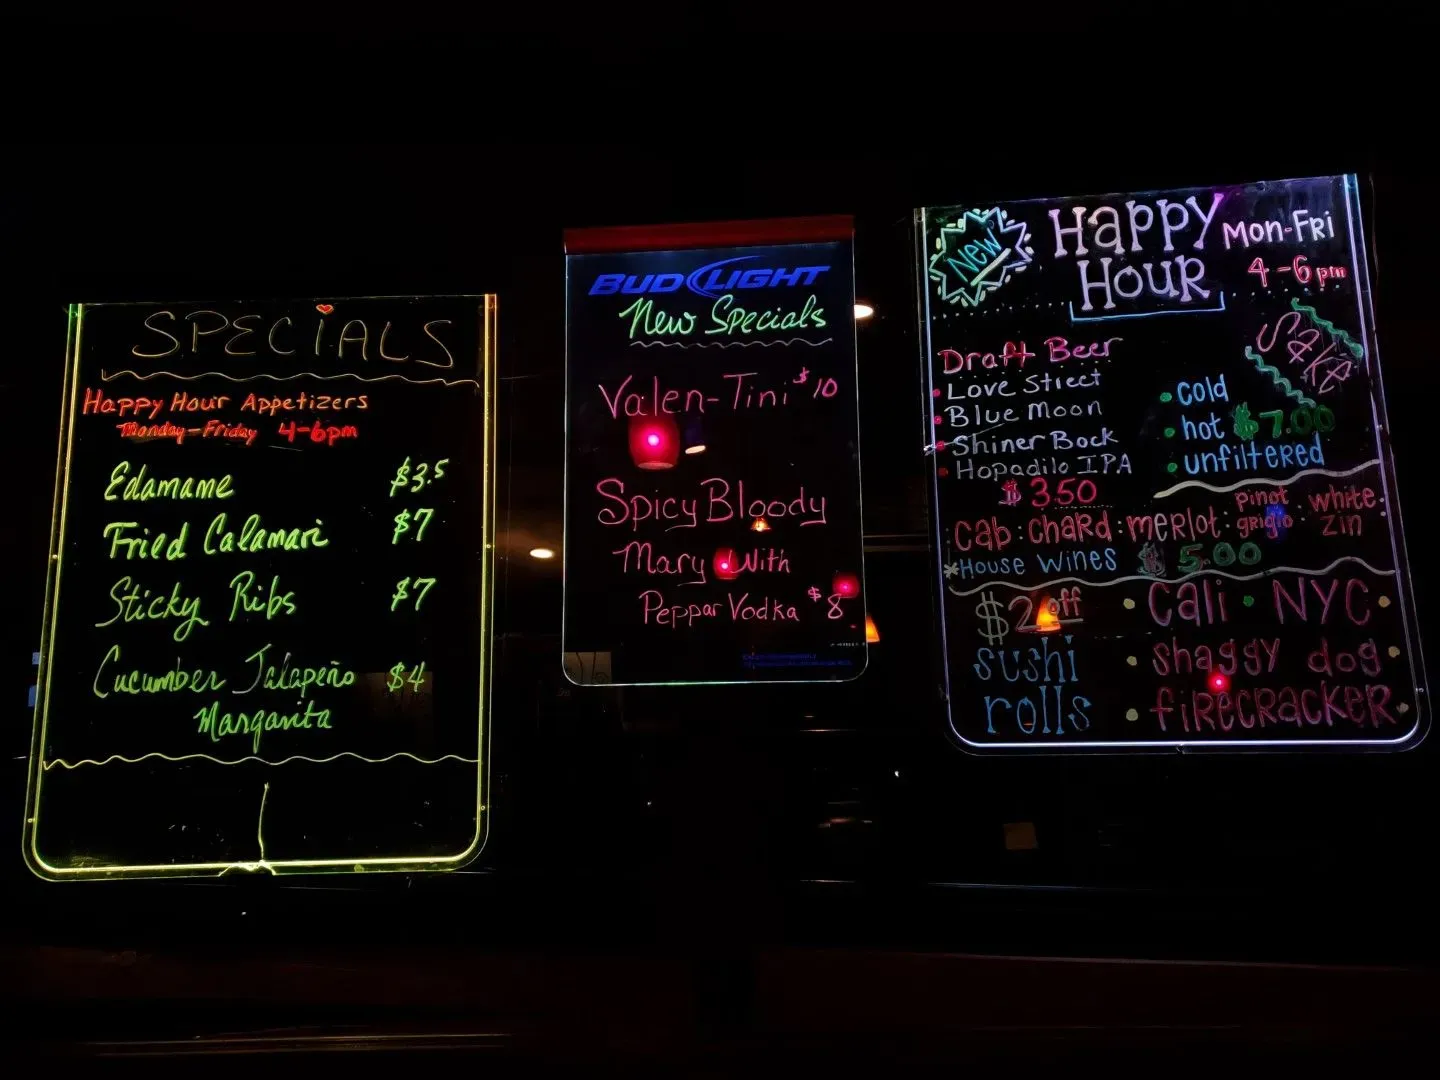 SPECIALS
Happy Hour Appetizers
Monday-Friday 4-6pm
Edamame $3.5
Fried Calamari $7
Sticky Ribs $7
Cucumber Jalapeño $4
Margarita
BUD LIGHT
New Specials
Valen-Tini $10
Spicy Bloody
Mary With
Peppar Vodka $8
New
Happy Mon-Fri
Hour 4-6pm
Draft Beer
• Love Street
• Blue Moon
• Shiner Bock
• Hopadilo IPA
$ 3.50
Sake
• cold
• hot $7.00
• unfiltered
cab · chard · merlot · pinot grigio · white zin
*House Wines $ 5.00
$2 off
sushi
rolls
• Cali • NYC •
• shaggy dog •
• firecracker •